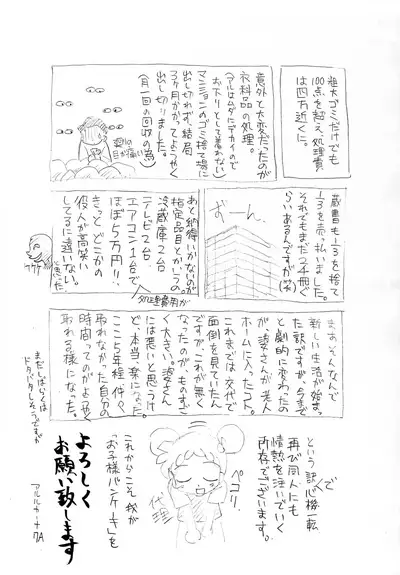 粗大ゴミだけでも
100点を超え、処理費
は四万近くに。
意外と大変だったのが
衣料品の処理。
(アルはムダにデカイので
お下りとして着れない)
マンションのゴミ捨て場に
出し切れず、結局
3ヶ月かかってようやく
出し切りました。
(月一回の回収の為)
周囲の
目が痛い
蔵書も1/3を捨て
1/3を売払いました。
それでもまだ2千冊ぐ
らいあるんですが(笑)
おーん…
あと納得いかないのが
指定品目とかいうの。
冷蔵庫2台
テレビ2台
エアコン1台で
ほぼ5万円!!
きっと どこかの
役人が高笑い
してるに違いない。
と思った
処理費用が
まぁ、そんなんで
新しい生活が始まっ
た訳ですが、今まで
と劇的に変わったの
が婆さんが老人
ホームに入ったコト。
これまでは交代で
面倒を見ていたん
ですが、これが無く
なったのが、ものすご
く大きい。婆さん
には悪いと思うけ
ど、本当、楽になった。
ここ5年程、中々
取れなかった自分の
時間ってのがようやく
取れる様になった。
まだしばらくは
ドタバタしそうですが
という訳で
心機一転
再び同人にも
情熱を注いでいく
所存でございます。
ペコリ
代理
これからこそ 我が
「お子様パンケーキ」を
よろしく
お願い致します
アルルカーナ7A